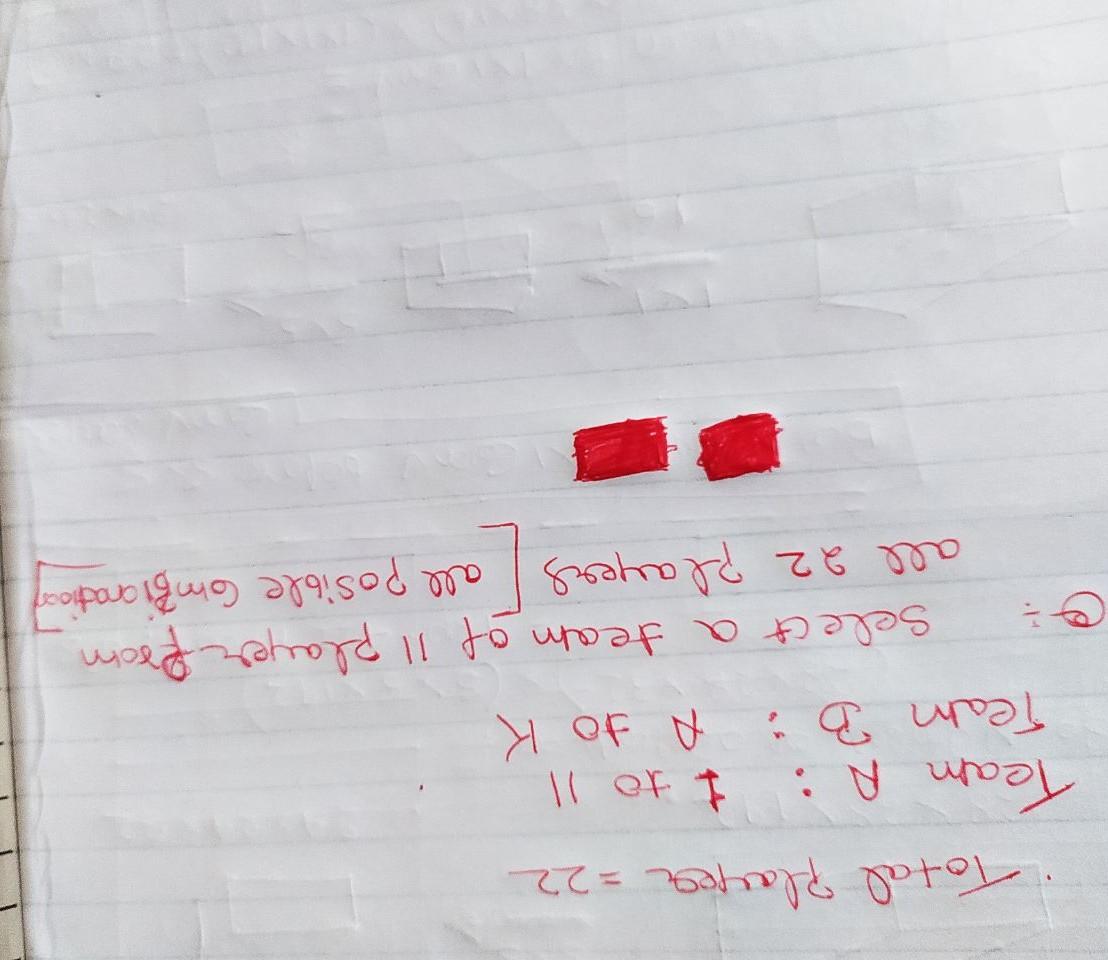 Total Player = 22
Team A : 1 to 11
Team B : A to K
Q ÷ Select a team of 11 player from
all 22 players [all posible combination]